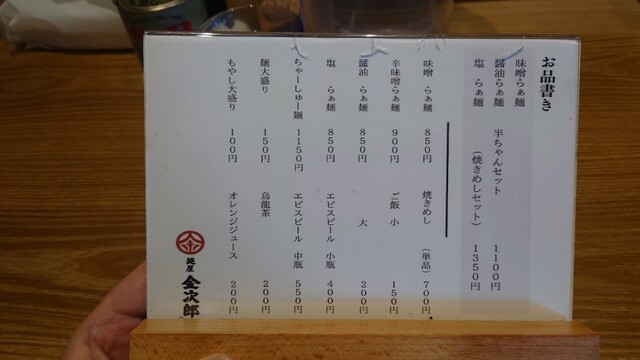 お品書き
味噌らぁ麺
醤油らぁ麺 半ちゃんセット 1100円
塩 らぁ麺 (焼きめしセット) 1350円
味噌 らぁ麺 850円 焼きめし (単品) 700円
辛味噌らぁ麺 900円 ご飯 小 150円
醤油 らぁ麺 850円 大 200円
塩 らぁ麺 850円 エビスビール 小瓶 400円
ちゃーしゅー麺 1150円 エビスビール 中瓶 550円
麺大盛り 150円 烏龍茶 200円
もやし大盛り 100円 オレンジジュース 200円
麺屋 金次郎